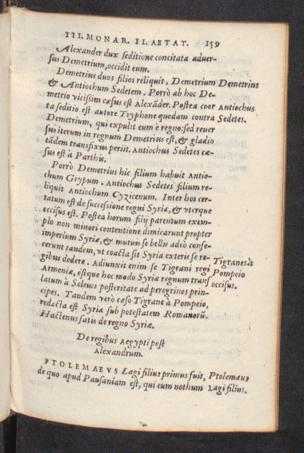 III. MONAR. II. AETAT. 159
Alexander dux seditione concitata aduer-
sus Demetrium, occidit eum.
Demetrius duos filios reliquit, Demetrium Demetrius
& Antiochum Sedetem. Porrò ab hoc De-
metrio vicissim cæsus est Alexãder. Postea coor Antiochus
ta seditio est autore Tryphone quodam contra Sedetes.
Demetrium, qui expulit eum è regno: sed reuer
sus iterum in regnum Demetrius est, & gladio
tãdem transfixus perit. Antiochus Sedetes cæ-
sus est à Parthis.
Porrò Demetrius hic filium habuit Antio-
chum Grypum. Antiochus Sedetes filium re-
liquit Antiochum Cyzicenum. Inter hos cer-
tatum est de successione regni Syriæ, & vterque
occisus est. Postea horum filij parentum exem-
plo non minori contentione dimicarunt propter
imperium Syriæ, & mutuis se bellis adeò confe-
cerunt tandem, vt coacta sit Syria exteris se re-
gibus dedere. Adiunxit enim se Tigrani regi Tigranes à
Armeniæ, estque hoc modo Syriæ regnum trans Pompeio
latum à Seleucis posteritate ad peregrinos prin- occisus.
cipes. Tandem verò cæso Tigrane à Pompeio,
redacta est Syria sub potestatem Romanorũ.
Hactenus satis de regno Syriæ.
De regibus Aegypti post
Alexandrum.
PTOLEMAEVS Lagi filius primus fuit, Ptolemæus
de quo apud Pausaniam est, qui eum nothum Lagi filius.